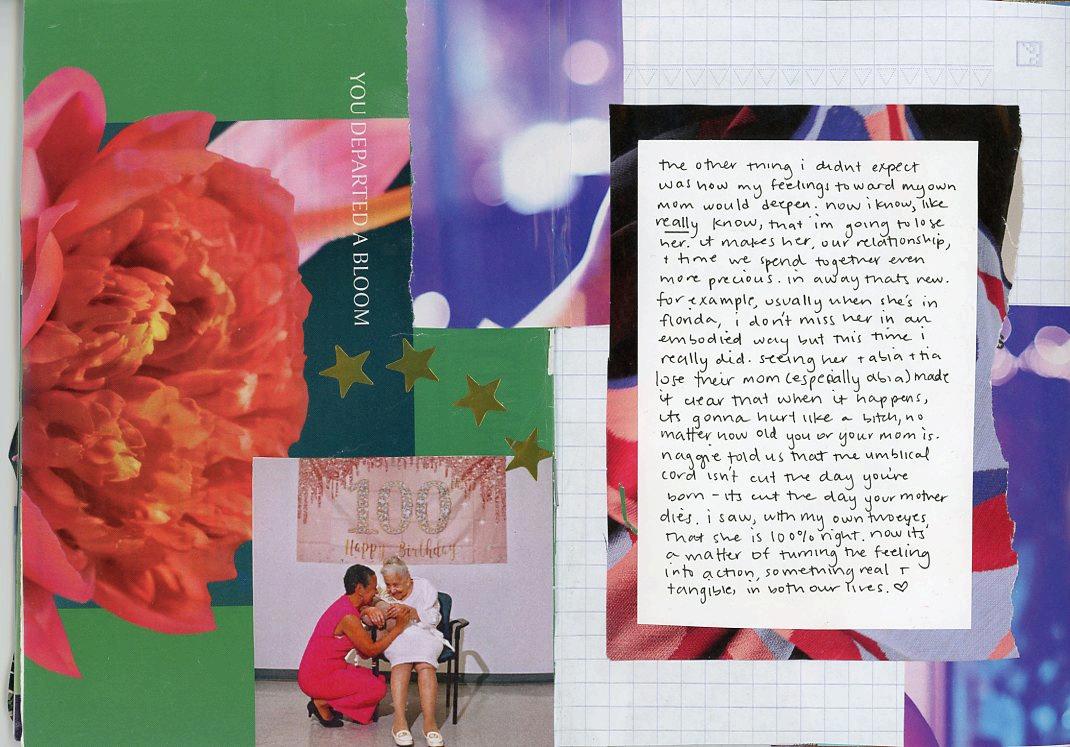 YOU DEPARTED A BLOOM
100
Happy Birthday
the other thing i didnt expect
was how my feelings toward my own
mom would deepen. now i know, like
really know, that i'm going to lose
her. it makes her, our relationship,
+ time we spend together even
more precious. in a way thats new.
for example, usually when she's in
florida, i don't miss her in an
embodied way but this time i
really did. seeing her + abia + tia
lose their mom (especially abia) made
it clear that when it happens,
its gonna hurt like a bitch, no
matter how old you or your mom is.
naggie told us that the umbilical
cord isn't cut the day you're
born - its cut the day your mother
dies. i saw, with my own two eyes,
that she is 100% right. now its
a matter of turning the feeling
into action, something real +
tangible, in both our lives. ♡